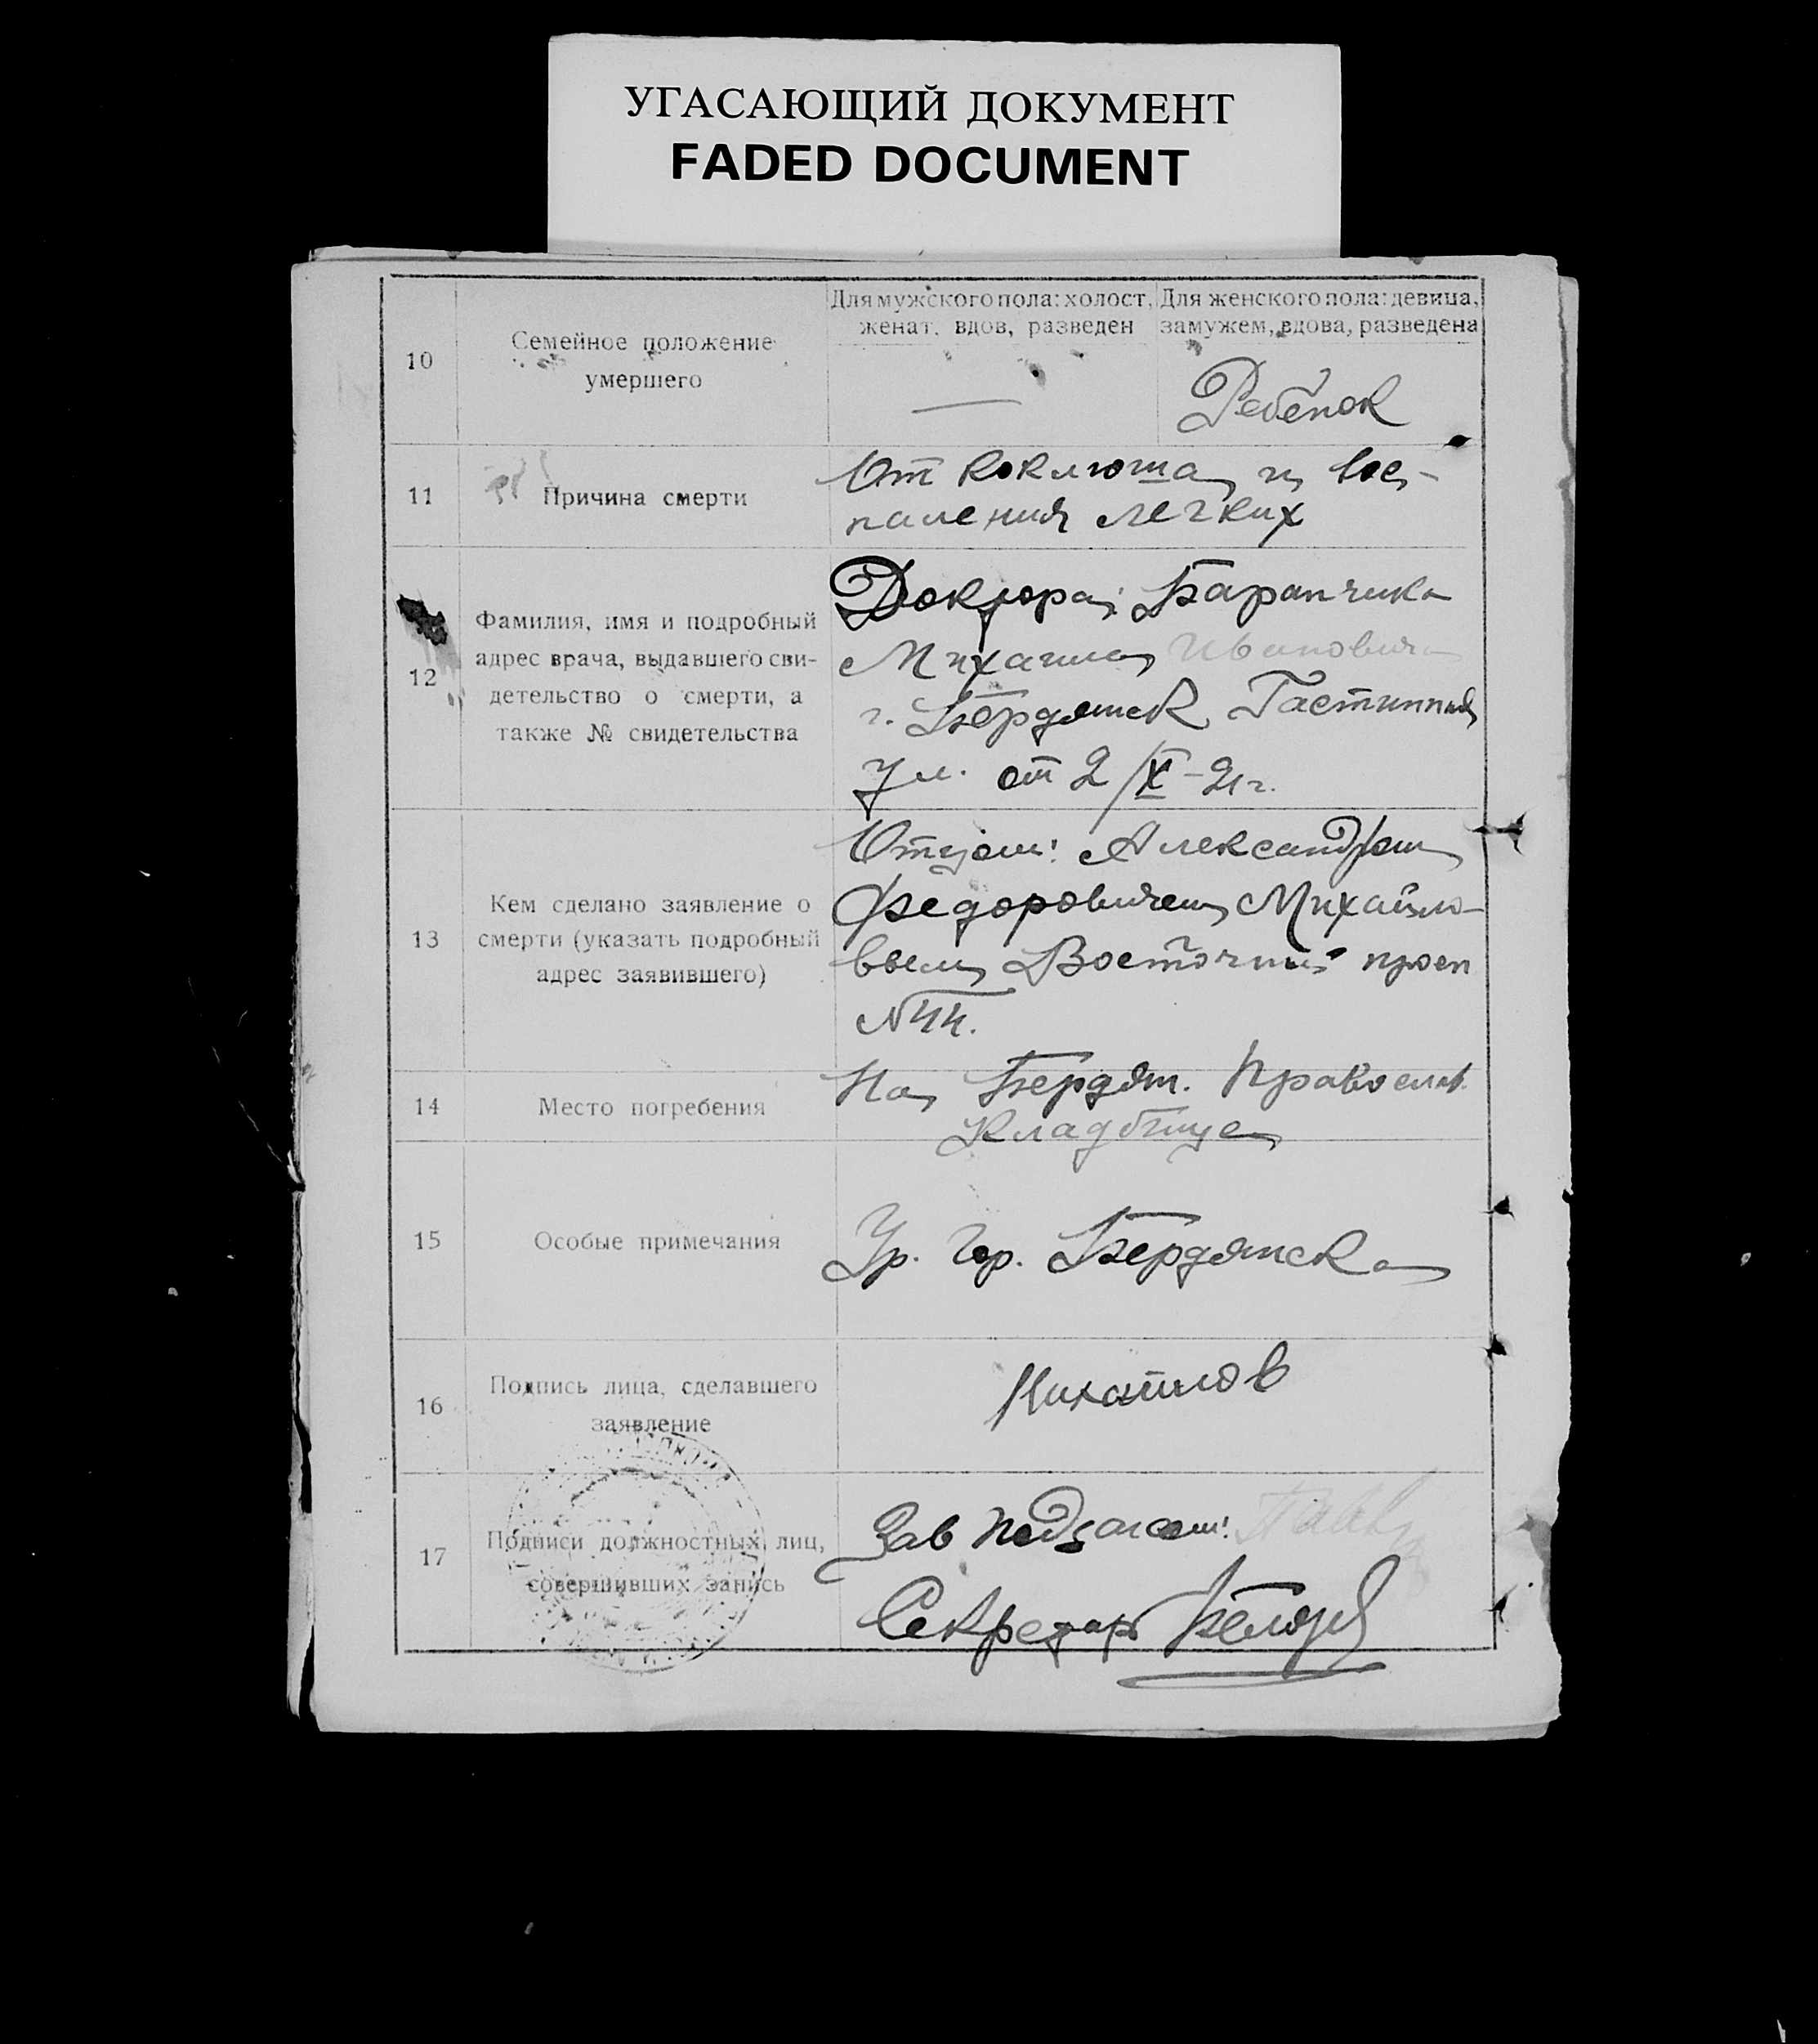 УГАСАЮЩИЙ ДОКУМЕНТ
FADED DOCUMENT
10
Семейное положение
умершего
Для мужского пола: холост,
женат, вдов, разведен
—
Для женского пола: девица,
замужем, вдова, разведена
Ребенок
11
Причина смерти
От коклюша и вос-
паления легких
12
Фамилия, имя и подробный
адрес врача, выдавшего сви-
детельство о смерти, а
также № свидетельства
Доктора: Баранчика
Михаила Ивановича
г. Бердянск Гастинная
ул. от 2/X-21г.
13
Кем сделано заявление о
смерти (указать подробный
адрес заявившего)
Отцом: Александром
Федоровичем Михайло-
вым Восточный просп
№44.
14
Место погребения
На Бердян. Православ.
Кладбище
15
Особые примечания
Ур. гор. Бердянска
16
Подпись лица, сделавшего
заявление
Михайлов
17
Подписи должностных лиц,
совершивших запись
Зав Подзагсом:
Секретарь